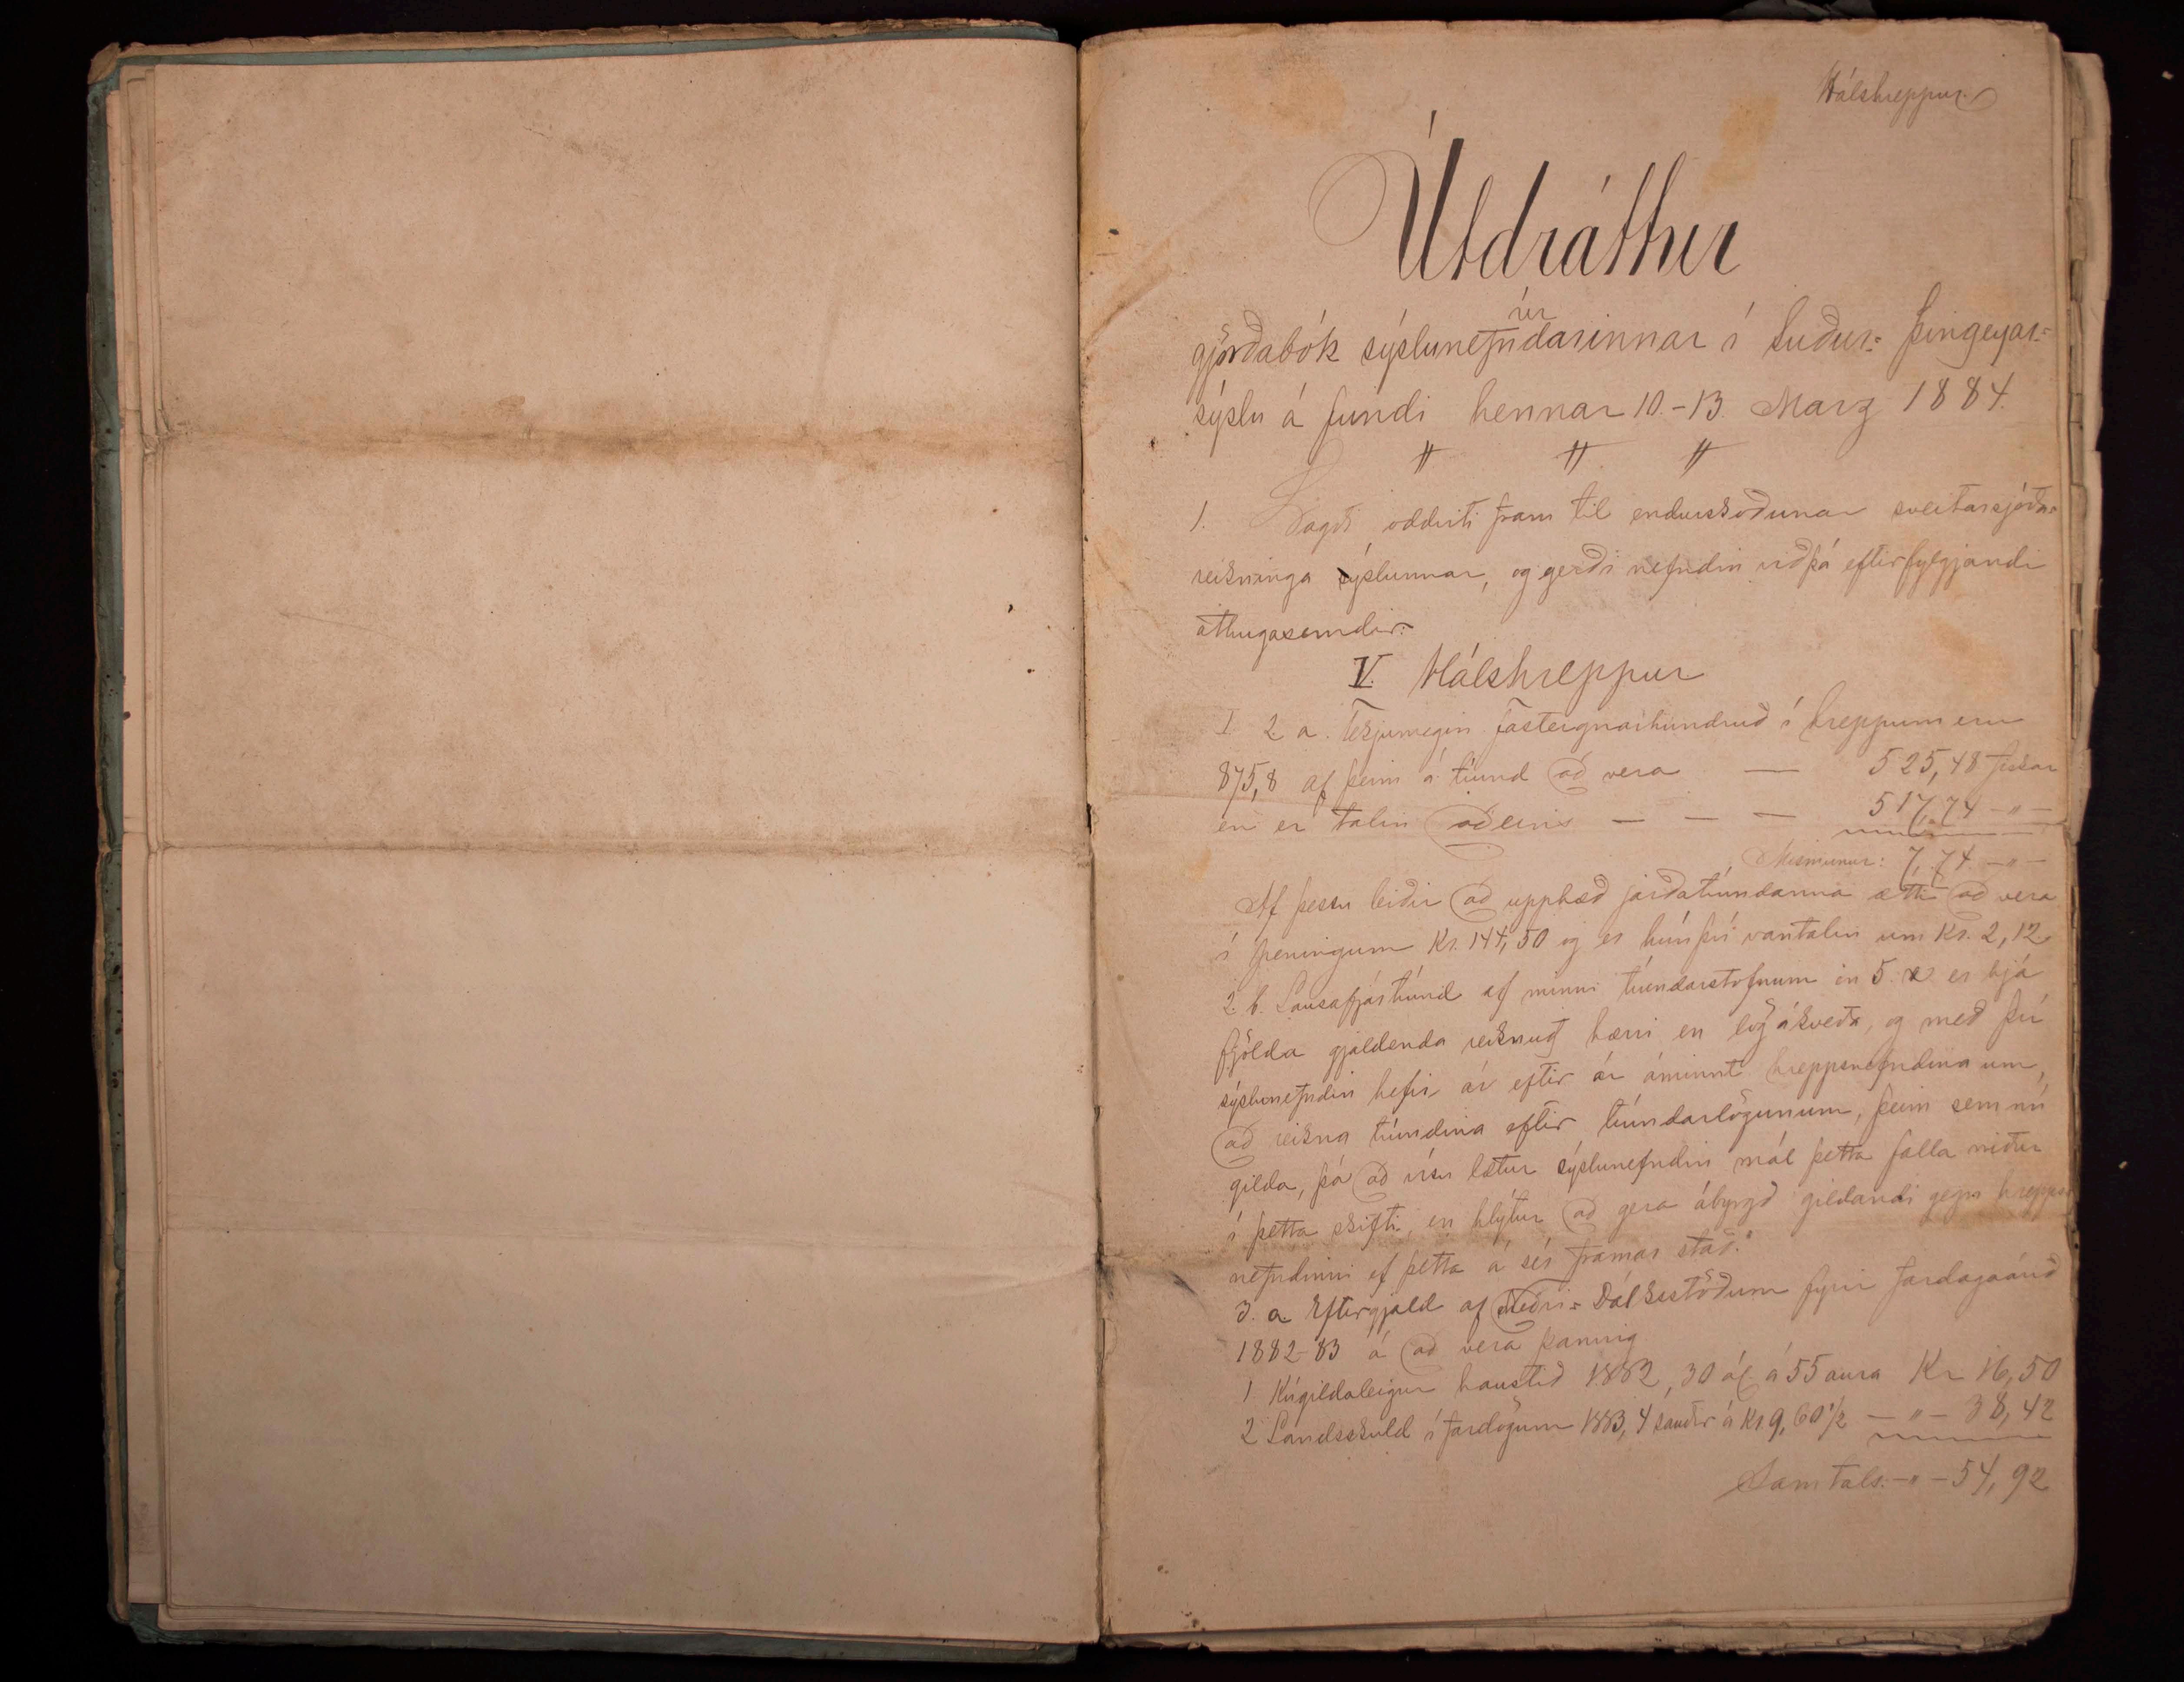 Hálshreppur
Útdráttur
úr
gjörðabók sýslunefndarinnar í Suður= Þingeyar=
sýslu á fundi hennar 10.-13. Marz 1884.
" " "
1. Lagði oddviti fram til endurskoðunar sveitarsjóða=
reikninga sýslunnar, og gerði nefndin við þá eftirfylgjandi
athugasemdir:
V. Hálshreppur
I 2 a. Tekjumegin. Fasteignarhundruð í hreppnum eru
875,8 af þeim á tíund að vera — 525,48 fiskar
en er talin aðeins — — — 517,74 —"—
Mismunur: 7,74 —"—
Af þessu leiðir að upphæð jarðatíundanna ætti að vera
í peningum Kr. 144,50 og er hún því vantalin um Kr. 2,12
2. b. Lausafjártíund af minni tíundarstofnum en 5. er hjá
fjölda gjaldenda reiknuð hærri en lög ákveða, og með því
sýslunefndin hefir ár eftir ár áminnt hreppsnefndina um,
að reikna tíundina eftir tíundarlögunum, þeim sem nú
gilda, þá að vísu lætur sýslunefndin mál þetta falla niður
í þetta skifti, en hlýtur að gera ábyrgð gildandi gegn hrepps=
nefndinni ef þetta á sér framar stað."
3. a. Eftirgjald af Neðri= Dálksstöðum fyrir fardagaárið
1882-83 á að vera þannig
1 Kúgildaleigur haustið 1882, 30 ál. á 55 aura Kr 16,50
2 Landsskuld í fardögum 1883, 4 sauðir á Kr. 9,60 1/2 —"— 38,42
Samtals: —"— 54,92